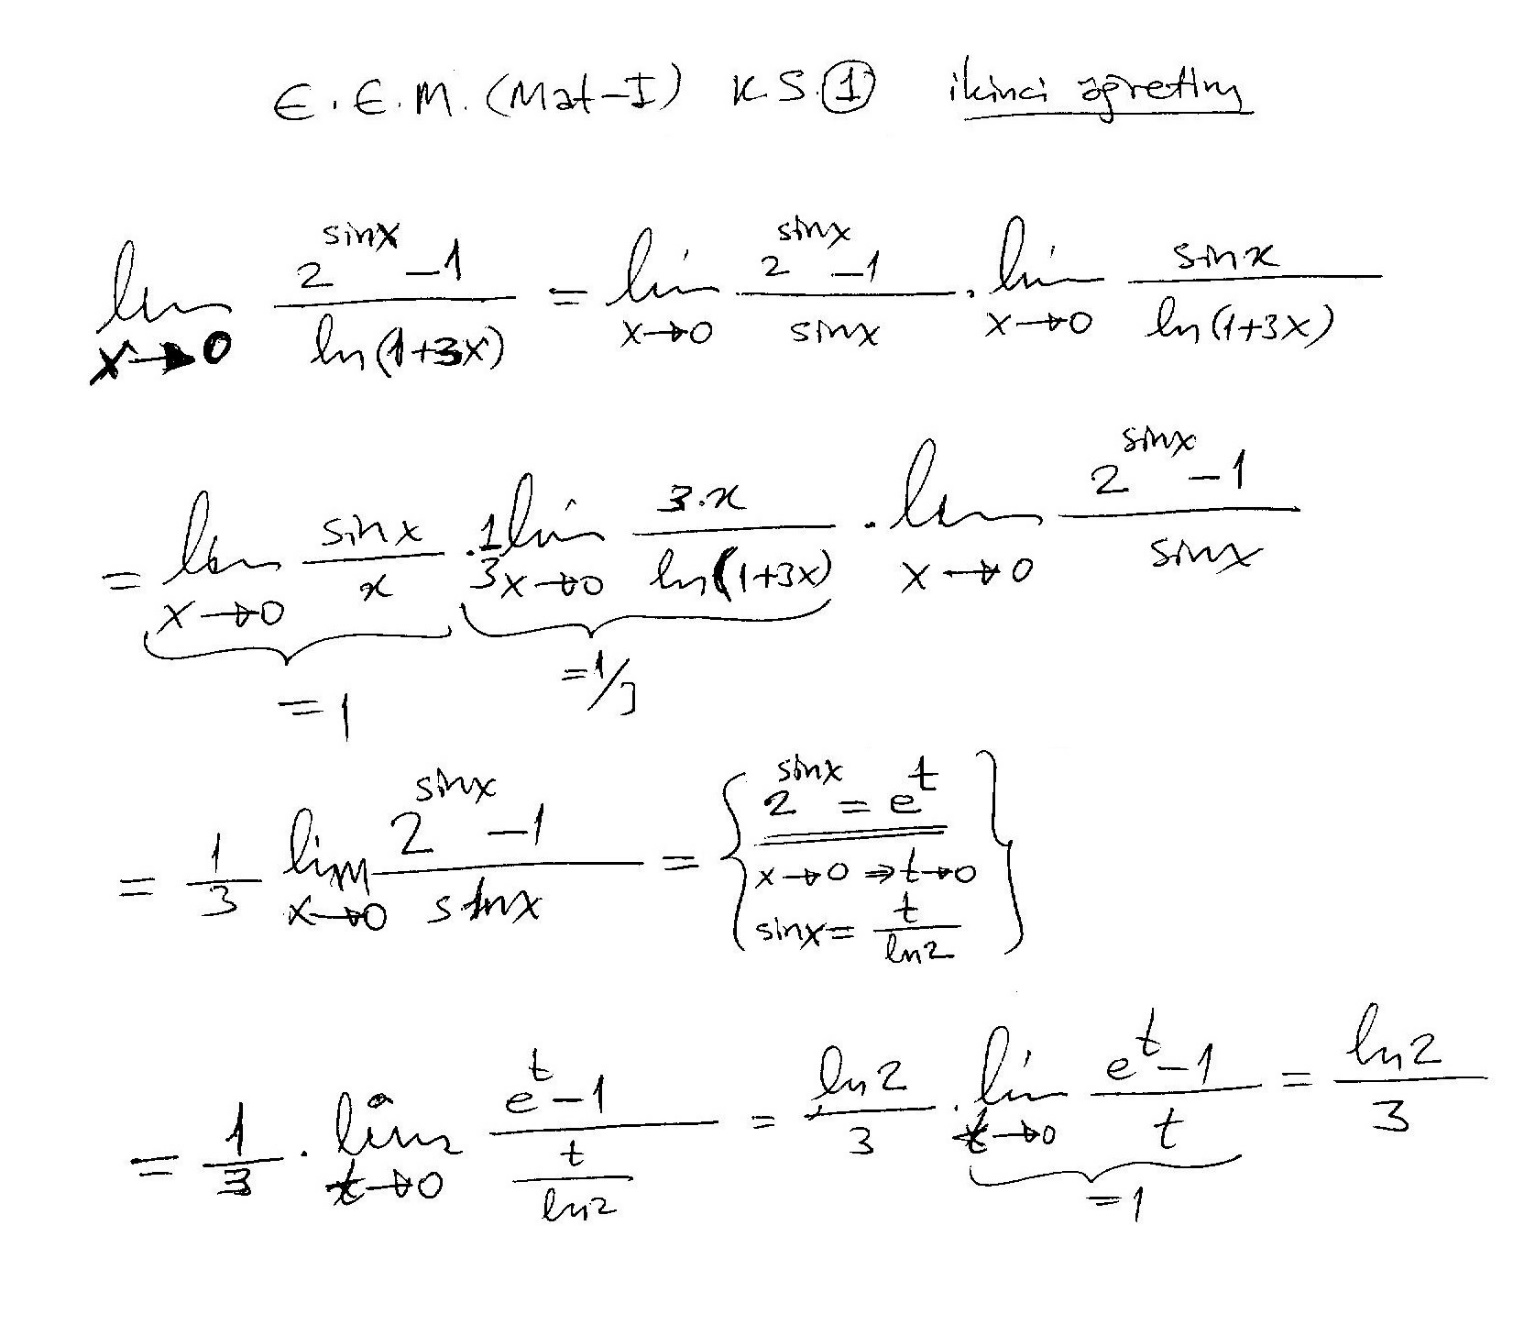 E.E.M. (Mat-I) K.S. ① ikinci öğretim
lim x→0 (2^sinx − 1)/(ln(1+3x)) = lim x→0 (2^sinx − 1)/(sinx) . lim x→0 (sinx)/(ln(1+3x))
= lim x→0 (sinx)/(x) . 1/3 lim x→0 (3.x)/(ln(1+3x)) . lim x→0 (2^sinx − 1)/(sinx)
=1 =1/3
= 1/3 lim x→0 (2^sinx − 1)/(sinx) = { 2^sinx = e^t
x→0 ⇒ t→0
sinx = t/ln2 }
= 1/3 . lim t→0 (e^t − 1)/(t/ln2) = ln2/3 . lim t→0 (e^t − 1)/t = ln2/3
=1